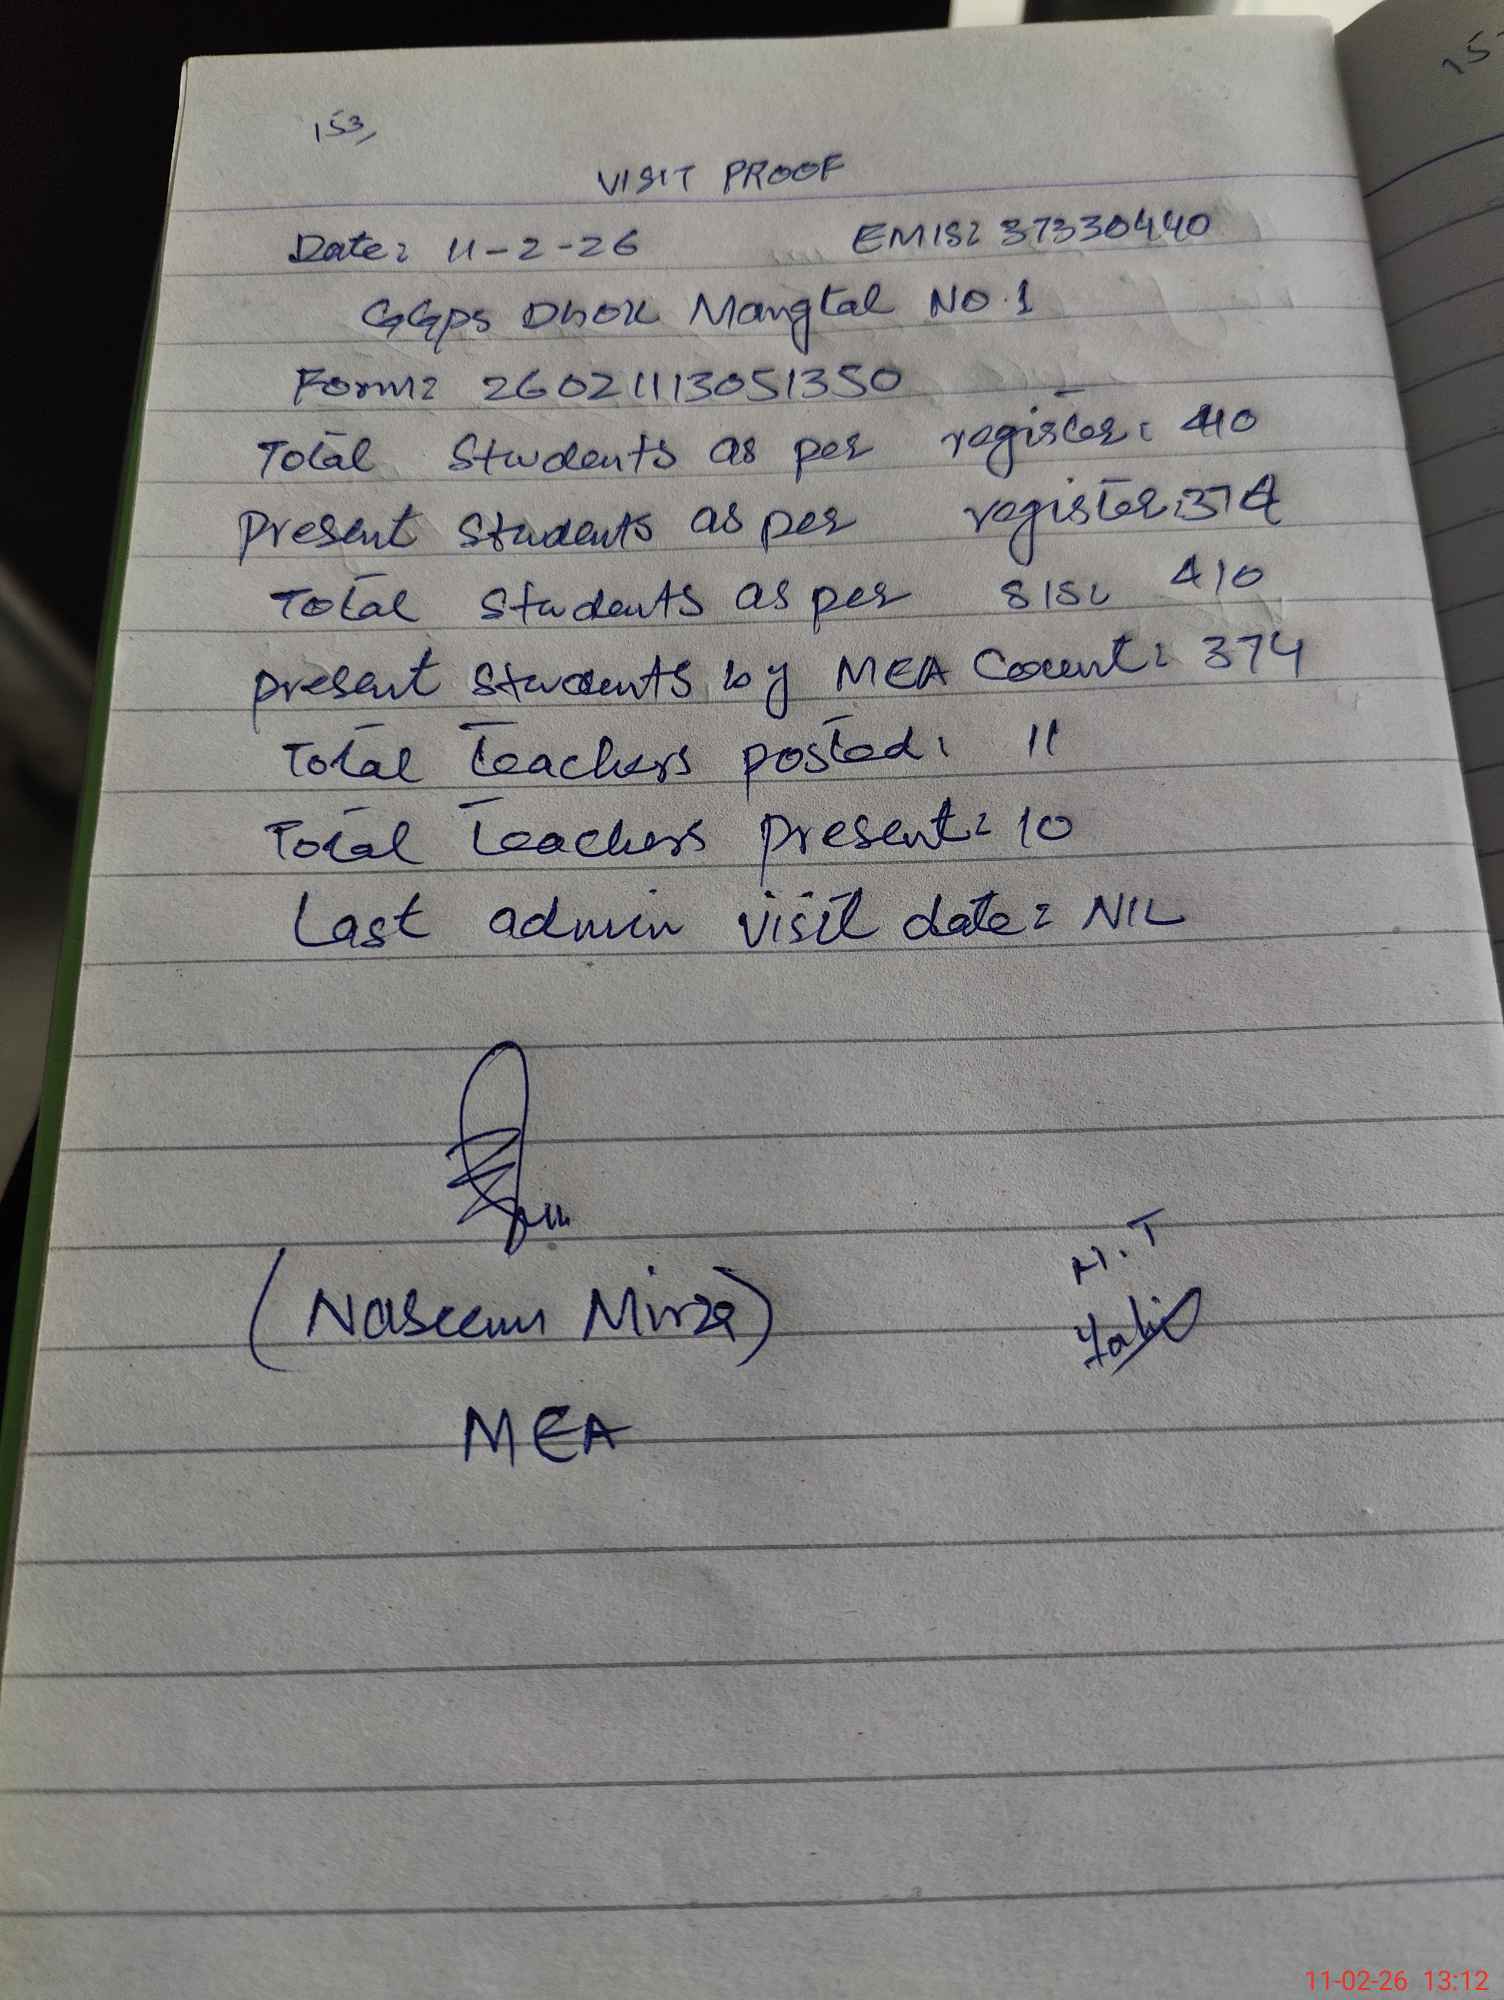 153,
VISIT PROOF
Date: 11-2-26 EMIS: 37330440
GGPS Dhok Mangtal NO.1
Form: 26021113051350
Total Students as per register: 410
Present Students as per register: 374
Total Students as per SIS: 410
present students by MEA Count: 374
Total Teachers posted: 11
Total Teachers present: 10
Last admin visit date: NIL
(Naseem Mirza)
MEA
11-02-26 13:12